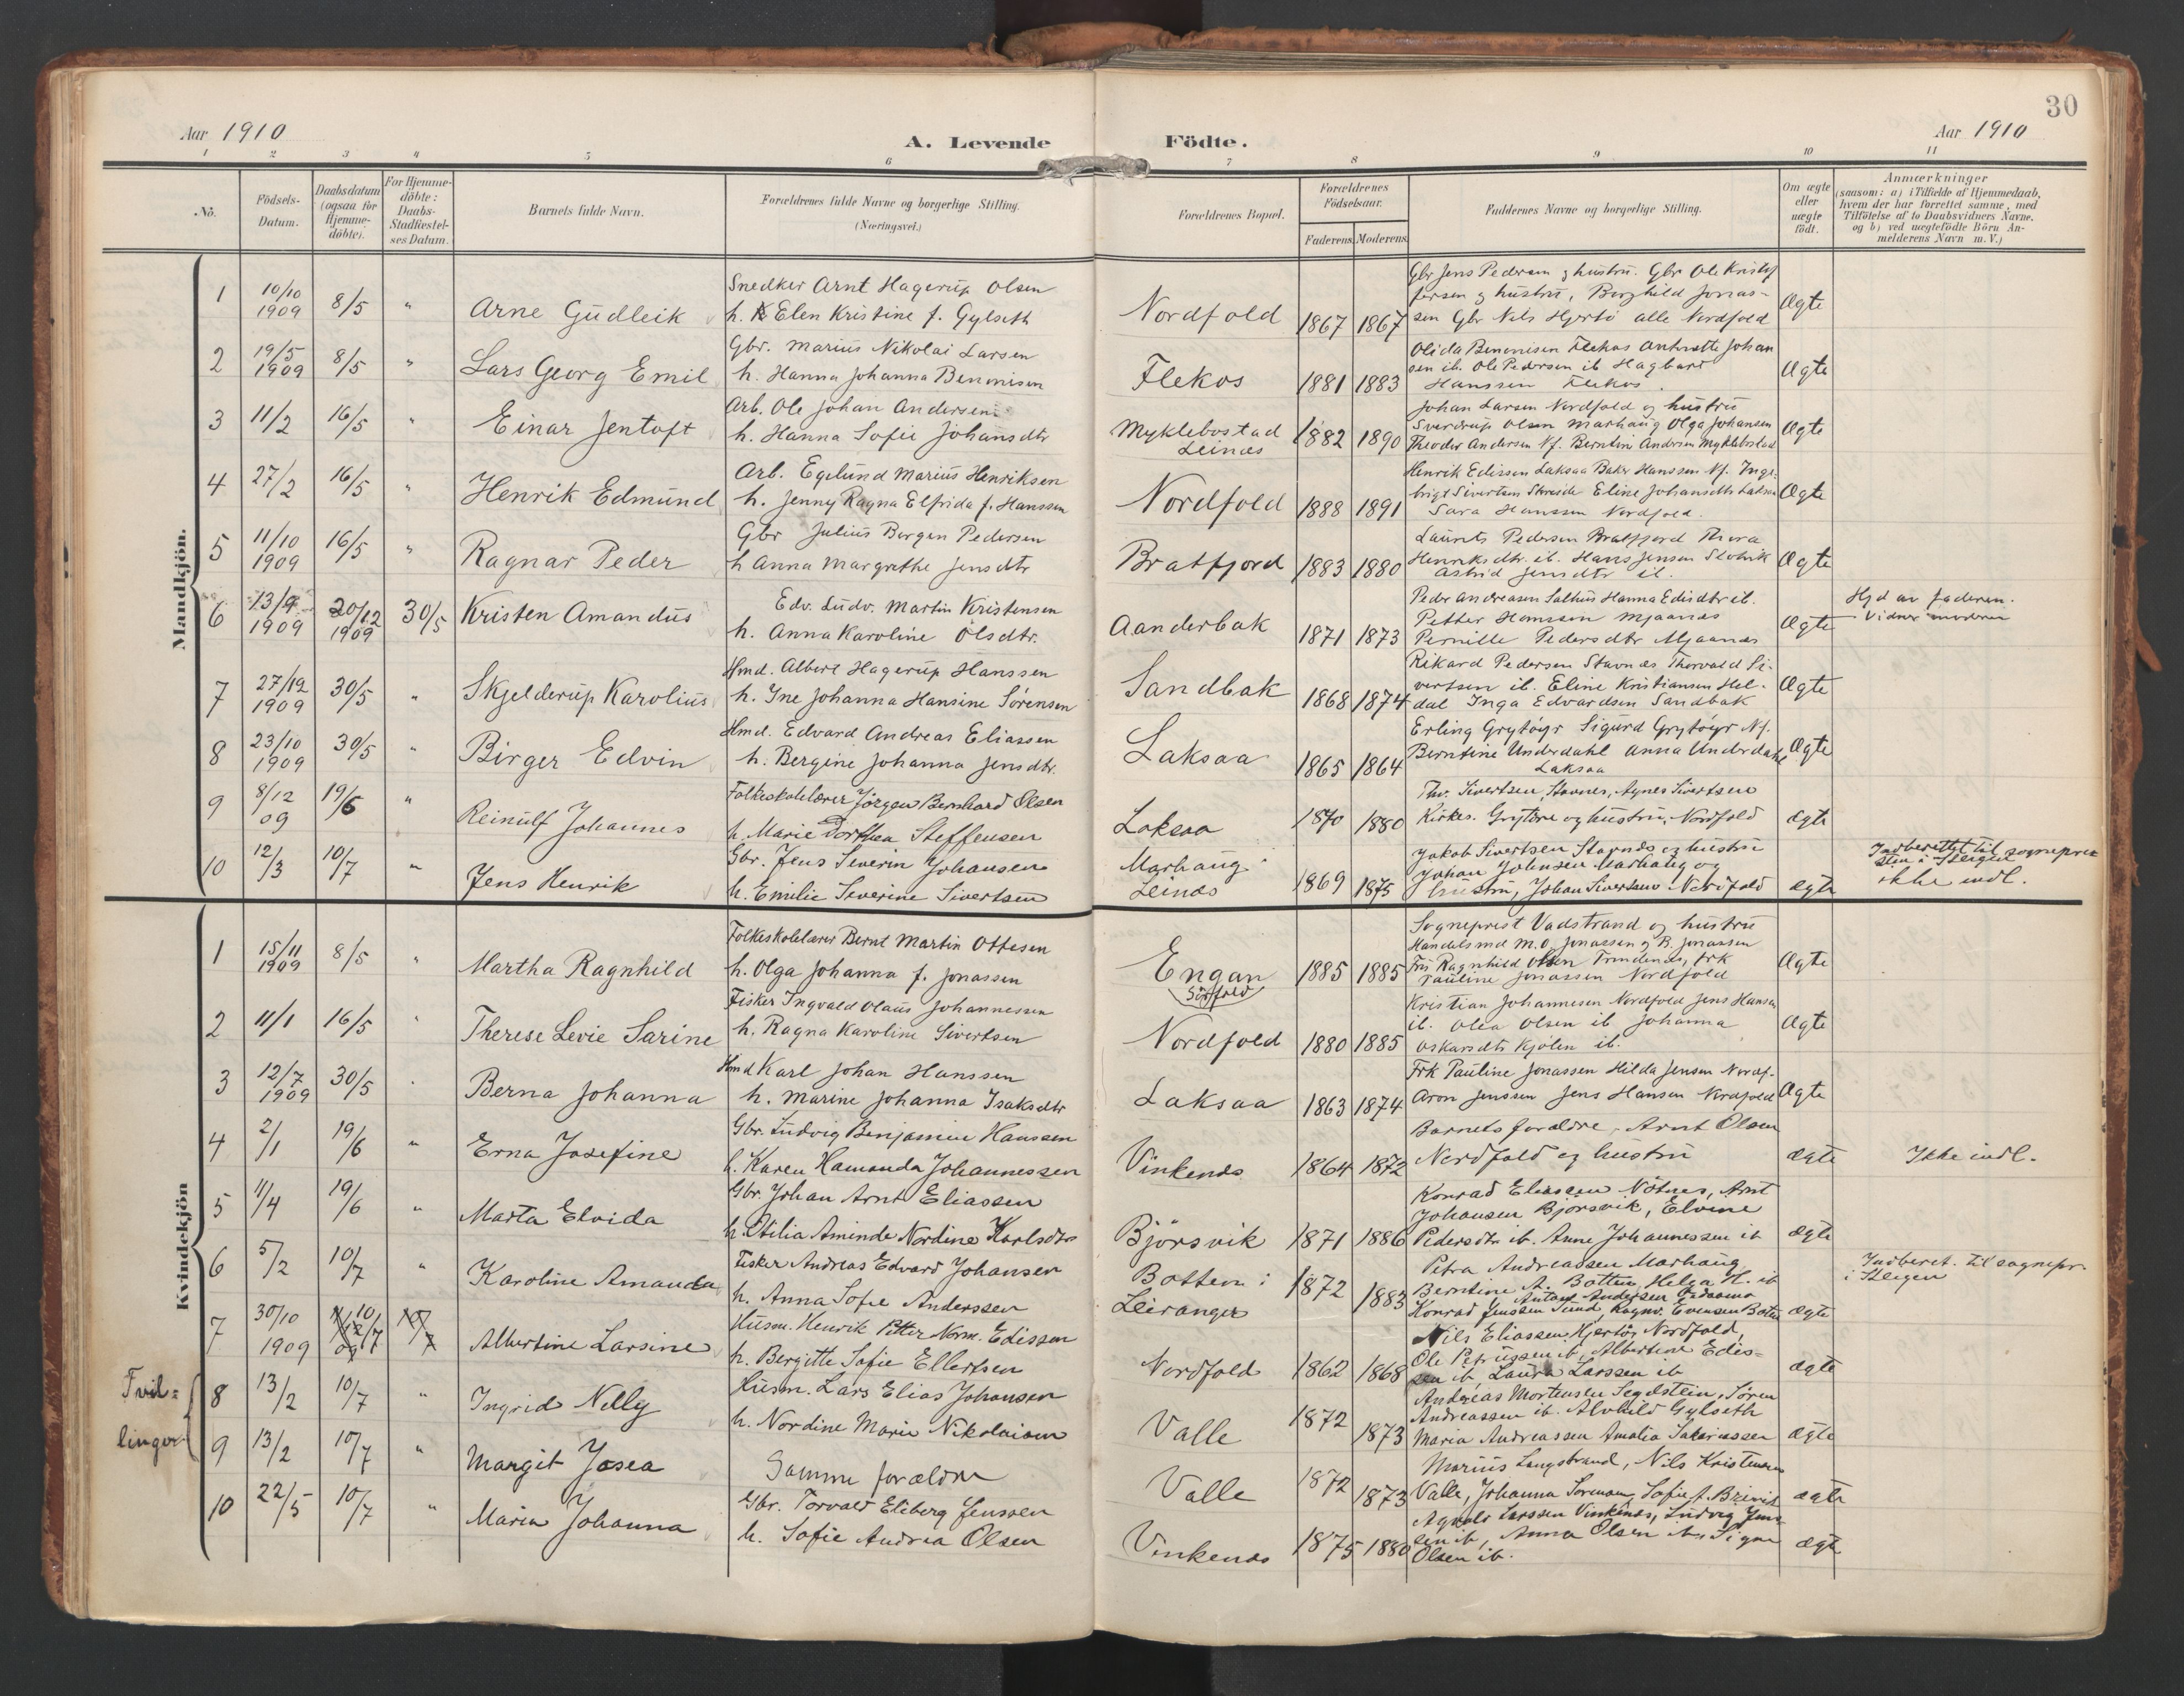 30
Aar 1910
A. Levende
Födte.
Aar 1910
1 2 3 4 5 6 7 8 9 10 11
No.
Födsels-
Datum.
Daabsdatum
(ogsaa for
Hjemme-
döbte).
For Hjemme-
döbte:
Daabs-
Stadfæstel-
ses Datum.
Barnets fulde Navn.
Forældrenes fulde Navne og borgerlige Stilling.
(Næringsvei.)
Forældrenes Bopæl.
Forældrenes
Födselsaar.
Faderens. Moderens.
Faddernes Navne og borgerlige Stilling.
Om ægte
eller
uægte
födt.
Anmærkninger
(saasom: a) i Tilfælde af Hjemmedaab,
hvem der har forrettet samme, med
Tilföielse af to Daabsvidners Navne,
og b) ved uægtefödte Börn An-
melderens Navn m. V.)
Mandkjön.
1 10/10 1909 8/5 " Arne Gudleik
Snedker Arnt Hagerup Olsen
h. Elen Kristine f. Gylseth
Nordfold 1867 1867
Gbr Jens Pedersen og hustru. Gbr Ole Kristof
fersen og hustru, Borghild Jonas-
sen Gbr Nils Hjertö alle Nordfold
Ægte
2 19/5 1909 8/5 " Lars Georg Emil
Gbr. Marius Nikolai Larsen
h. Hanna Johanna Benonisen
Flekos 1881 1883
Olida Benonisen Flekos Antonette Johan
sen ib. Ole Pedersen ib Hagbart
Hanssen Flekos.
Ægte
3 11/2 16/5 " Einar Jentoft
Arb. Ole Johan Andersen
h. Hanna Sofie Johansdtr
Myklebostad
Leines
1882 1890
Johan Larsen Nordfold og hustru
Sverdrup Olsen Marhaug Olga Johansen
Theodor Andersen Nf. Berntine Andersen Myklebostad
Ægte
4 27/2 16/5 " Henrik Edmund
Arb. Egelund Marius Henriksen
h. Jenny Ragna Elfrida f. Hanssen
Nordfold 1888 1891
Henrik Edissen Laksaa Baker Hanssen Nf. Inge-
brigt Sivertsen Eline Johansdtr Laksaa
Sara Hanssen Nordfold.
Ægte
5 11/10 1909 16/5 " Ragnar Peder
Gbr Julius Borgen Pedersen
h Anna Margrethe Jensdtr
Bratfjord 1883 1880
Laurits Pedersen Bratfjord Thora
Henriksdtr. ib. Hans Jensen Slotvik
Astrid Jensdtr ib.
Ægte
6 13/9 1909 20/12 1909 30/5 Kristen Amandus
Edv. Ludv. Martin Kristensen
h. Anna Karoline Olsdtr.
Aanderbak 1871 1873
Peder Andreasen Salhus Hanna Edisdtr ib.
Petter Hanssen Mjaanes
Pernille Pedersdtr Mjaanes
Ægte
Hjd av faderen.
Vidner moderen
7 27/12 1909 30/5 " Skjelderup Karolius
Hmd. Albert Hagerup Hanssen
h. Ine Johanna Hansine Sörensen
Sandbak 1868 1874
Rikard Pedersen Stavnes Thorvald Si-
vertsen ib. Eline Kristiansen Hel-
dal Inga Edvardsen Sandbak
Ægte
8 23/10 1909 30/5 " Birger Edvin
Hmd. Edvard Andreas Eliassen
h. Bergine Johanna Jensdtr.
Laksaa 1865 1864
Erling Grytöyr Sigurd Grytöyr Nf.
Berntine Underdahl Anna Underdahl
Laksaa
Ægte
9 8/12 09 19/6 " Reinulf Johannes
Folkeskolelærer Jörgen Bernhard Olsen
h. Marie Dorthea Steffensen
Laksaa 1870 1880
Thv. Sivertsen, Stavnes, Agnes Sivertsen
Kirkes. Grytöre og hustru, Nordfold
ægte
10 12/3 10/7 " Jens Henrik
Gbr. Jens Severin Johansen
h. Emilie Severine Sivertsen
Marhaug i
Leines
1869 1875
Jakob Sivertsen Stavnes og hustru
Johan Johnsen Marhaug og
hustru, Johan Sivertsen Nordfold
ægte
Indberettet til sognepres
sten i Steigen
ikke indl.
Kvindekjön
1 15/11 1909 8/5 " Martha Ragnhild
Folkeskolelærer Bernt Martin Ottesen
h. Olga Johanna f. Jonassen
Engan
Sörfold
1885 1885
Sogneprest Vadstrand og hustru
Handelsmd M.O. Jonassen og R. Jonassen
Fru Ragnhild Olsen Trondenes, Frk
Pauline Jonassen Nordfold
Ægte
2 11/1 16/5 " Therese Levie Sarine
Fisker Ingvald Olaus Johannessen
h. Ragna Karoline Sivertsen
Nordfold 1880 1885
Kristian Johannesen Nordfold Jens Hansen
ib. Olea Olsen ib Johanna
Oskarsdtr Kjölen ib.
Ægte
3 12/7 1909 30/5 " Berna Johanna
Hmd Karl Johan Hanssen
h. Marine Johanna Isaksdtr
Laksaa 1863 1874
Frk Pauline Jonassen Hilda Jensen Nordf-
Aron Jenssen Jens Hansen Nordfold
Ægte
4 2/1 19/6 " Erna Josefine
Gbr. Ludvig Benjamin Hanssen
h. Karen Hamanda Johannessen
Vinkenes 1864 1872
Barnets forældre, Arnt Olsen
Nordfold og hustru
ægte
Ikke indl.
5 11/4 19/6 " Marta Elvida
Gbr. Johan Arnt Eliassen
h. Otilia Aminda Nordine Karlsdtr
Björsvik 1871 1886
Konrad Eliassen Nötnes, Arnt
Johansen Björsvik, Elvine
Pedersdtr ib. Anne Johannessen ib
ægte
6 5/2 10/7 " Karoline Amanda
Fisker Andreas Edvard Johansen
h. Anna Sofie Anderssen
Botten i
Leiranger
1872 1883
Petra Andreassen Marhaug
Berntine A. Botten, Helga H. ib
Konrad Jenssen Sund, Ragnv. Evensen Botten
ægte
Indberet. til sognepr.
i Steigen
7 30/10 1909 10/7 Albertine Larsine
Husm. Henrik Petter Norm. Edissen
h. Bergitte Sofie Ellertsen
Nordfold 1862 1868
Nils Eliassen Hjertö, Nordfold,
Ole Petrussen ib, Albertine Edis-
sen ib, Laura Larssen ib
ægte
Tvil-
linger
8 13/2 10/7 " Ingrid Nelly
Husm. Lars Elias Johansen
h. Nordine Marie Nikolaisen
Valle 1872 1873
Andreas Mortensen Segelstein, Sören
Andreassen ib. Alvhild Gylseth
Maria Andreassen Amalia Sakariassen
ægte
9 13/2 10/7 " Margit Josea
Samme forældre
Valle 1872 1873
Marius Langstrand, Nils Kristensen
Valle, Johanna Sörensen, Sofie A.
ægte
10 22/5 10/7 " Maria Johanna
Gbr. Torvald Eliberg Jenssen
h. Sofie Andrea Olsen
Vinkenes 1875 1880
Larssen Vinkenes, Ludvig Jens-
sen ib, Anna Olsen ib, Signe
Olsen ib.
ægte